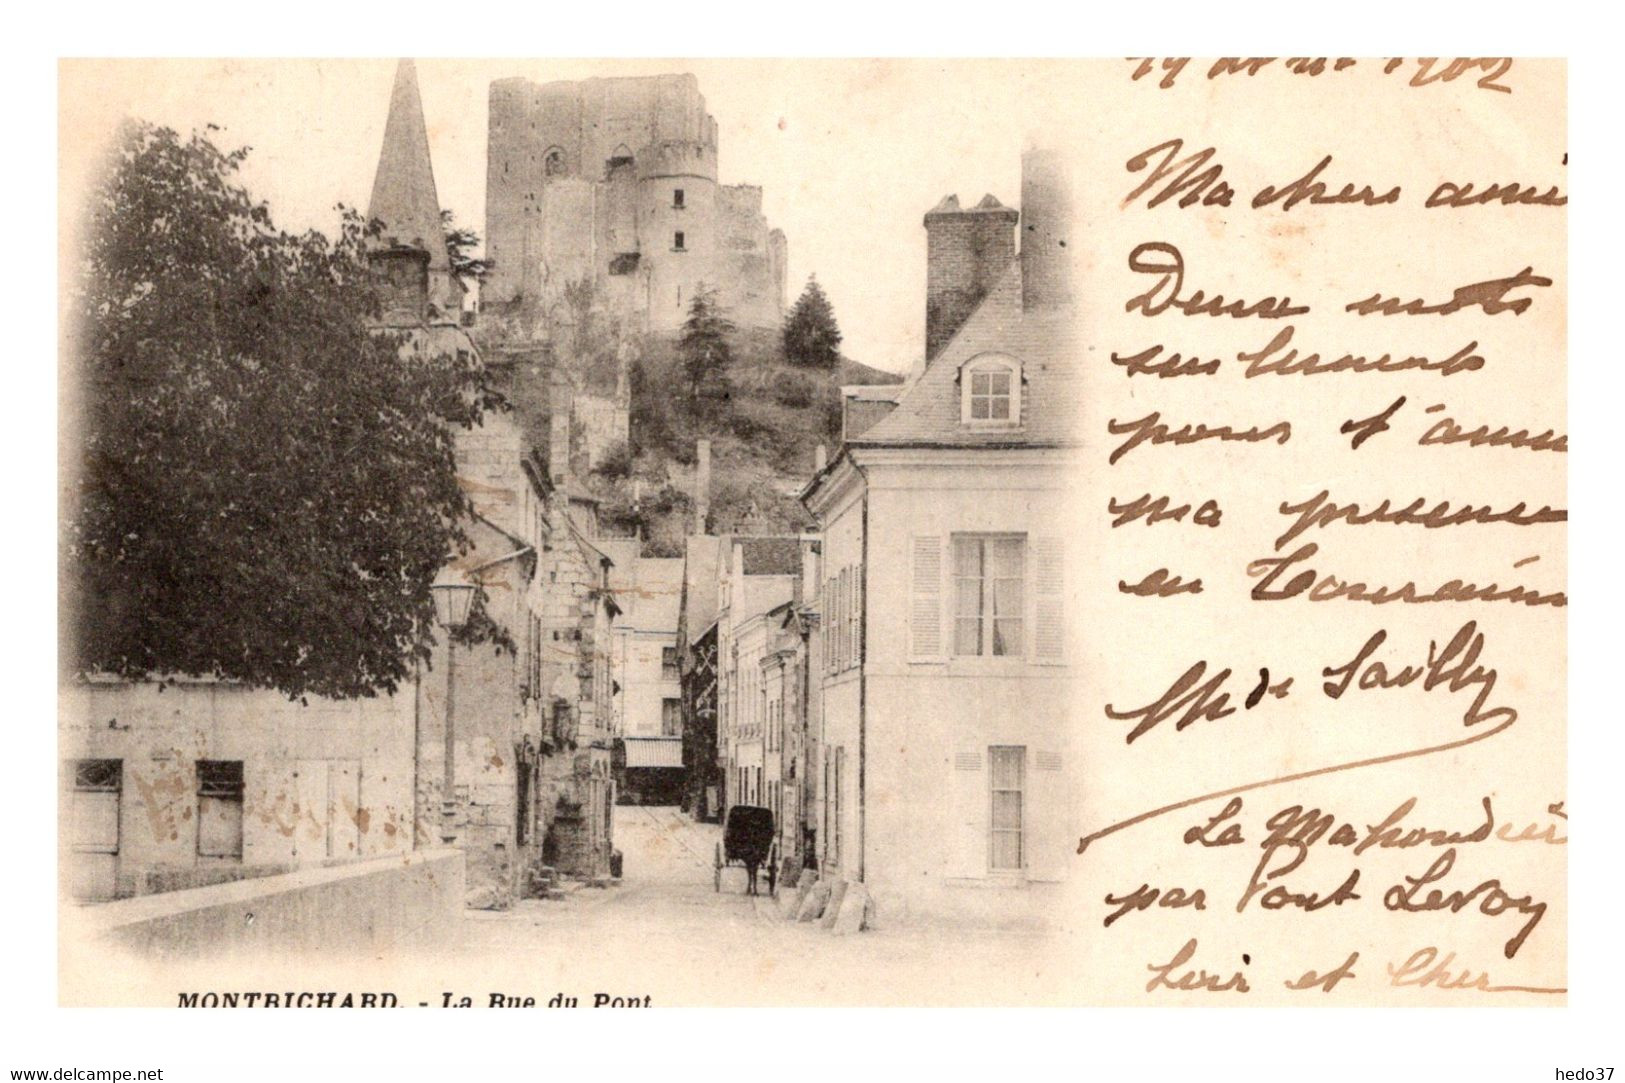 19 avril 1902
Ma chère amie
Deux mots
seulement
pour t'annon
ma présence
en Touraine
de Sailly
La Mahoudière
par Pont Levoy
Loir et Cher
MONTRICHARD. - La Rue du Pont
www.delcampe.net
hedo37